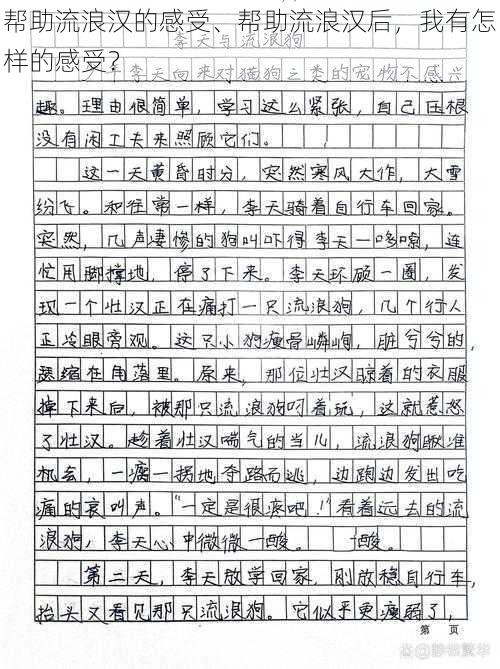 帮助流浪汉的感受、帮助流浪汉后，我有怎
样的感受？
李天与流浪狗
少年李天向来对猫狗之类的宠物不感兴
趣。理由很简单，学习这么紧张，自己压根
没有闲工夫来照顾它们。
这一天黄昏时分，突然寒风大作，大雪
纷飞。和往常一样，李天骑着自行车回家。
突然，几声凄惨的狗叫吓得李天一哆嗦，连
忙用脚撑地，停了下来。李天环顾一圈，发
现一个壮汉正在痛打一只流浪狗，几个行人
正冷眼旁观。这只小狗瘦骨嶙峋，脏兮兮的，
瑟缩在角落里。原来，那位壮汉晾着的衣服
掉下来后，被那只流浪狗叼着玩，这就惹怒
了壮汉。趁着壮汉喘气的当儿，流浪狗瞅准
机会，一瘸一拐地夺路而逃，边跑边发出吃
痛的哀叫声。“一定是很疼吧！”看着远去的流
浪狗，李天心中微微一酸。 酸。
第二天，李天放学回家，刚放稳自行车，
抬头又看见那只流浪狗。它似乎更瘦弱了，
第 页